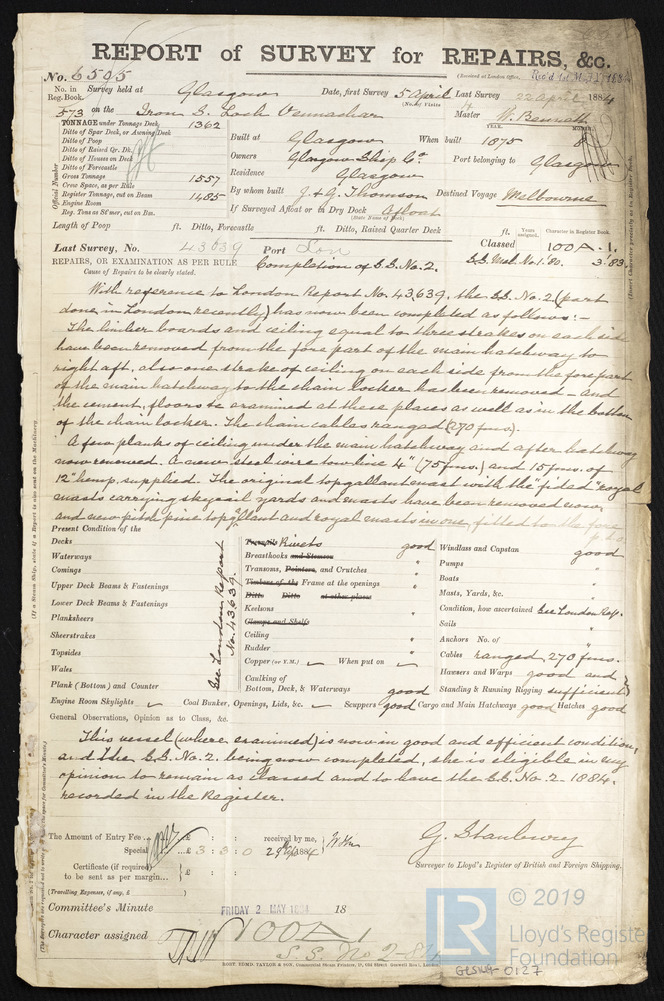 REPORT of SURVEY for REPAIRS, &c.
No. 6595
(Received at London Office, Rec'd 1st May 1884
No. in Reg. Book. Survey held at Glasgow Date, first Survey 5 April Last Survey 22 April 1884
(No. of Visits 4
573 on the Iron S. Loch Vennachar Master W. Bennett
TONNAGE under Tonnage Deck 1362
Ditto of Spar Deck, or Awning Deck
Ditto of Poop
Ditto of Raised Qr. Dk.
Ditto of Houses on Deck
Ditto of Forecastle
Gross Tonnage 1557
Crew Space, as per Rule
Register Tonnage, cut on Beam 1485
Engine Room
Reg. Tons as St'mer, cut on Bm.
Official Number
YEAR. MONTH.
Built at Glasgow When built 1875 8
Owners Glasgow Ship Co. Port belonging to Glasgow
Residence Glasgow
By whom built J. & G. Thomson Destined Voyage Melbourne
If Surveyed Afloat or in Dry Dock Afloat
(State Name of Dock)
Length of Poop ft. Ditto, Forecastle ft. Ditto, Raised Quarter Deck ft.
Years assigned. Character in Register Book.
Last Survey, No. 43639 Port Lon Classed 100 A. 1.
REPAIRS, OR EXAMINATION AS PER RULE Completion of S.S. No. 2. S.S. Mel. No. 1. '80. 3. '83.
Cause of Repairs to be clearly stated.
With reference to London Report No. 43,639, the S.S. No. 2 (part
done in London recently) has now been completed as follows:-
The limber boards and ceiling equal to three strakes on each side
have been removed from the fore part of the main hatchway to
right aft, also one strake of ceiling on each side from the fore part
of the main hatchway to the chain locker has been removed - and
the cement, floors &c examined at these places as well as in the bottom
of the chain locker. The chain cables ranged (270 fms).
A few planks of ceiling under the main hatchway and after hatchway
now renewed. A new steel wire tow line 4" (75 fms.) and 15 fms. of
12" hemp, supplied. The original topgallant mast with the "fided" royal
masts carrying skysail yards and masts have been removed now
and new pitch pine topgallant and royal masts in one fitted to the fore
p.to.
Present Condition of the
Decks
Waterways
Comings
Upper Deck Beams & Fastenings
Lower Deck Beams & Fastenings
Planksheers
Sheerstrakes
Topsides
Wales
Plank (Bottom) and Counter
See London Report
No. 43639.
Treenails Rivets good
Breasthooks and Stemson "
Transoms, Pointers, and Crutches "
Timbers of the Frame at the openings "
Ditto Ditto at other places
Keelsons "
Clamps and Shelfs
Ceiling "
Rudder "
Copper (or Y.M.) ✓ When put on ✓
Caulking of
Bottom, Deck, & Waterways good
Windlass and Capstan good
Pumps "
Boats "
Masts, Yards, &c. "
Condition, how ascertained See London Rep.
Sails "
Anchors No. of "
Cables ranged 270 fms.
Hawsers and Warps good and
Standing & Running Rigging sufficient
Engine Room Skylights ✓ Coal Bunker, Openings, Lids, &c. ✓ Scuppers good Cargo and Main Hatchways good Hatches good
General Observations, Opinion as to Class, &c.
This vessel (where examined) is now in good and efficient condition,
and the S.S. No. 2. being now completed, she is eligible in my
opinion to remain as classed and to have the S.S. No. 2 - 1884.
recorded in the Register.
The Amount of Entry Fee £ : : received by me,
Special £ 3 : 3 : 0 29/4/1884
Certificate (if required) £ : :
to be sent as per margin
(Travelling Expenses, if any, £ )
G. Stanbury
Surveyor to Lloyd's Register of British and Foreign Shipping.
Committee's Minute FRIDAY 2 MAY 1884 18
Character assigned 100 A 1
S.S. No 2 - 84
(If a Steam Ship, state if a Report is also sent on the Machinery.
© 2019
LR
Lloyd's Register
Foundation
GLS1149-0127